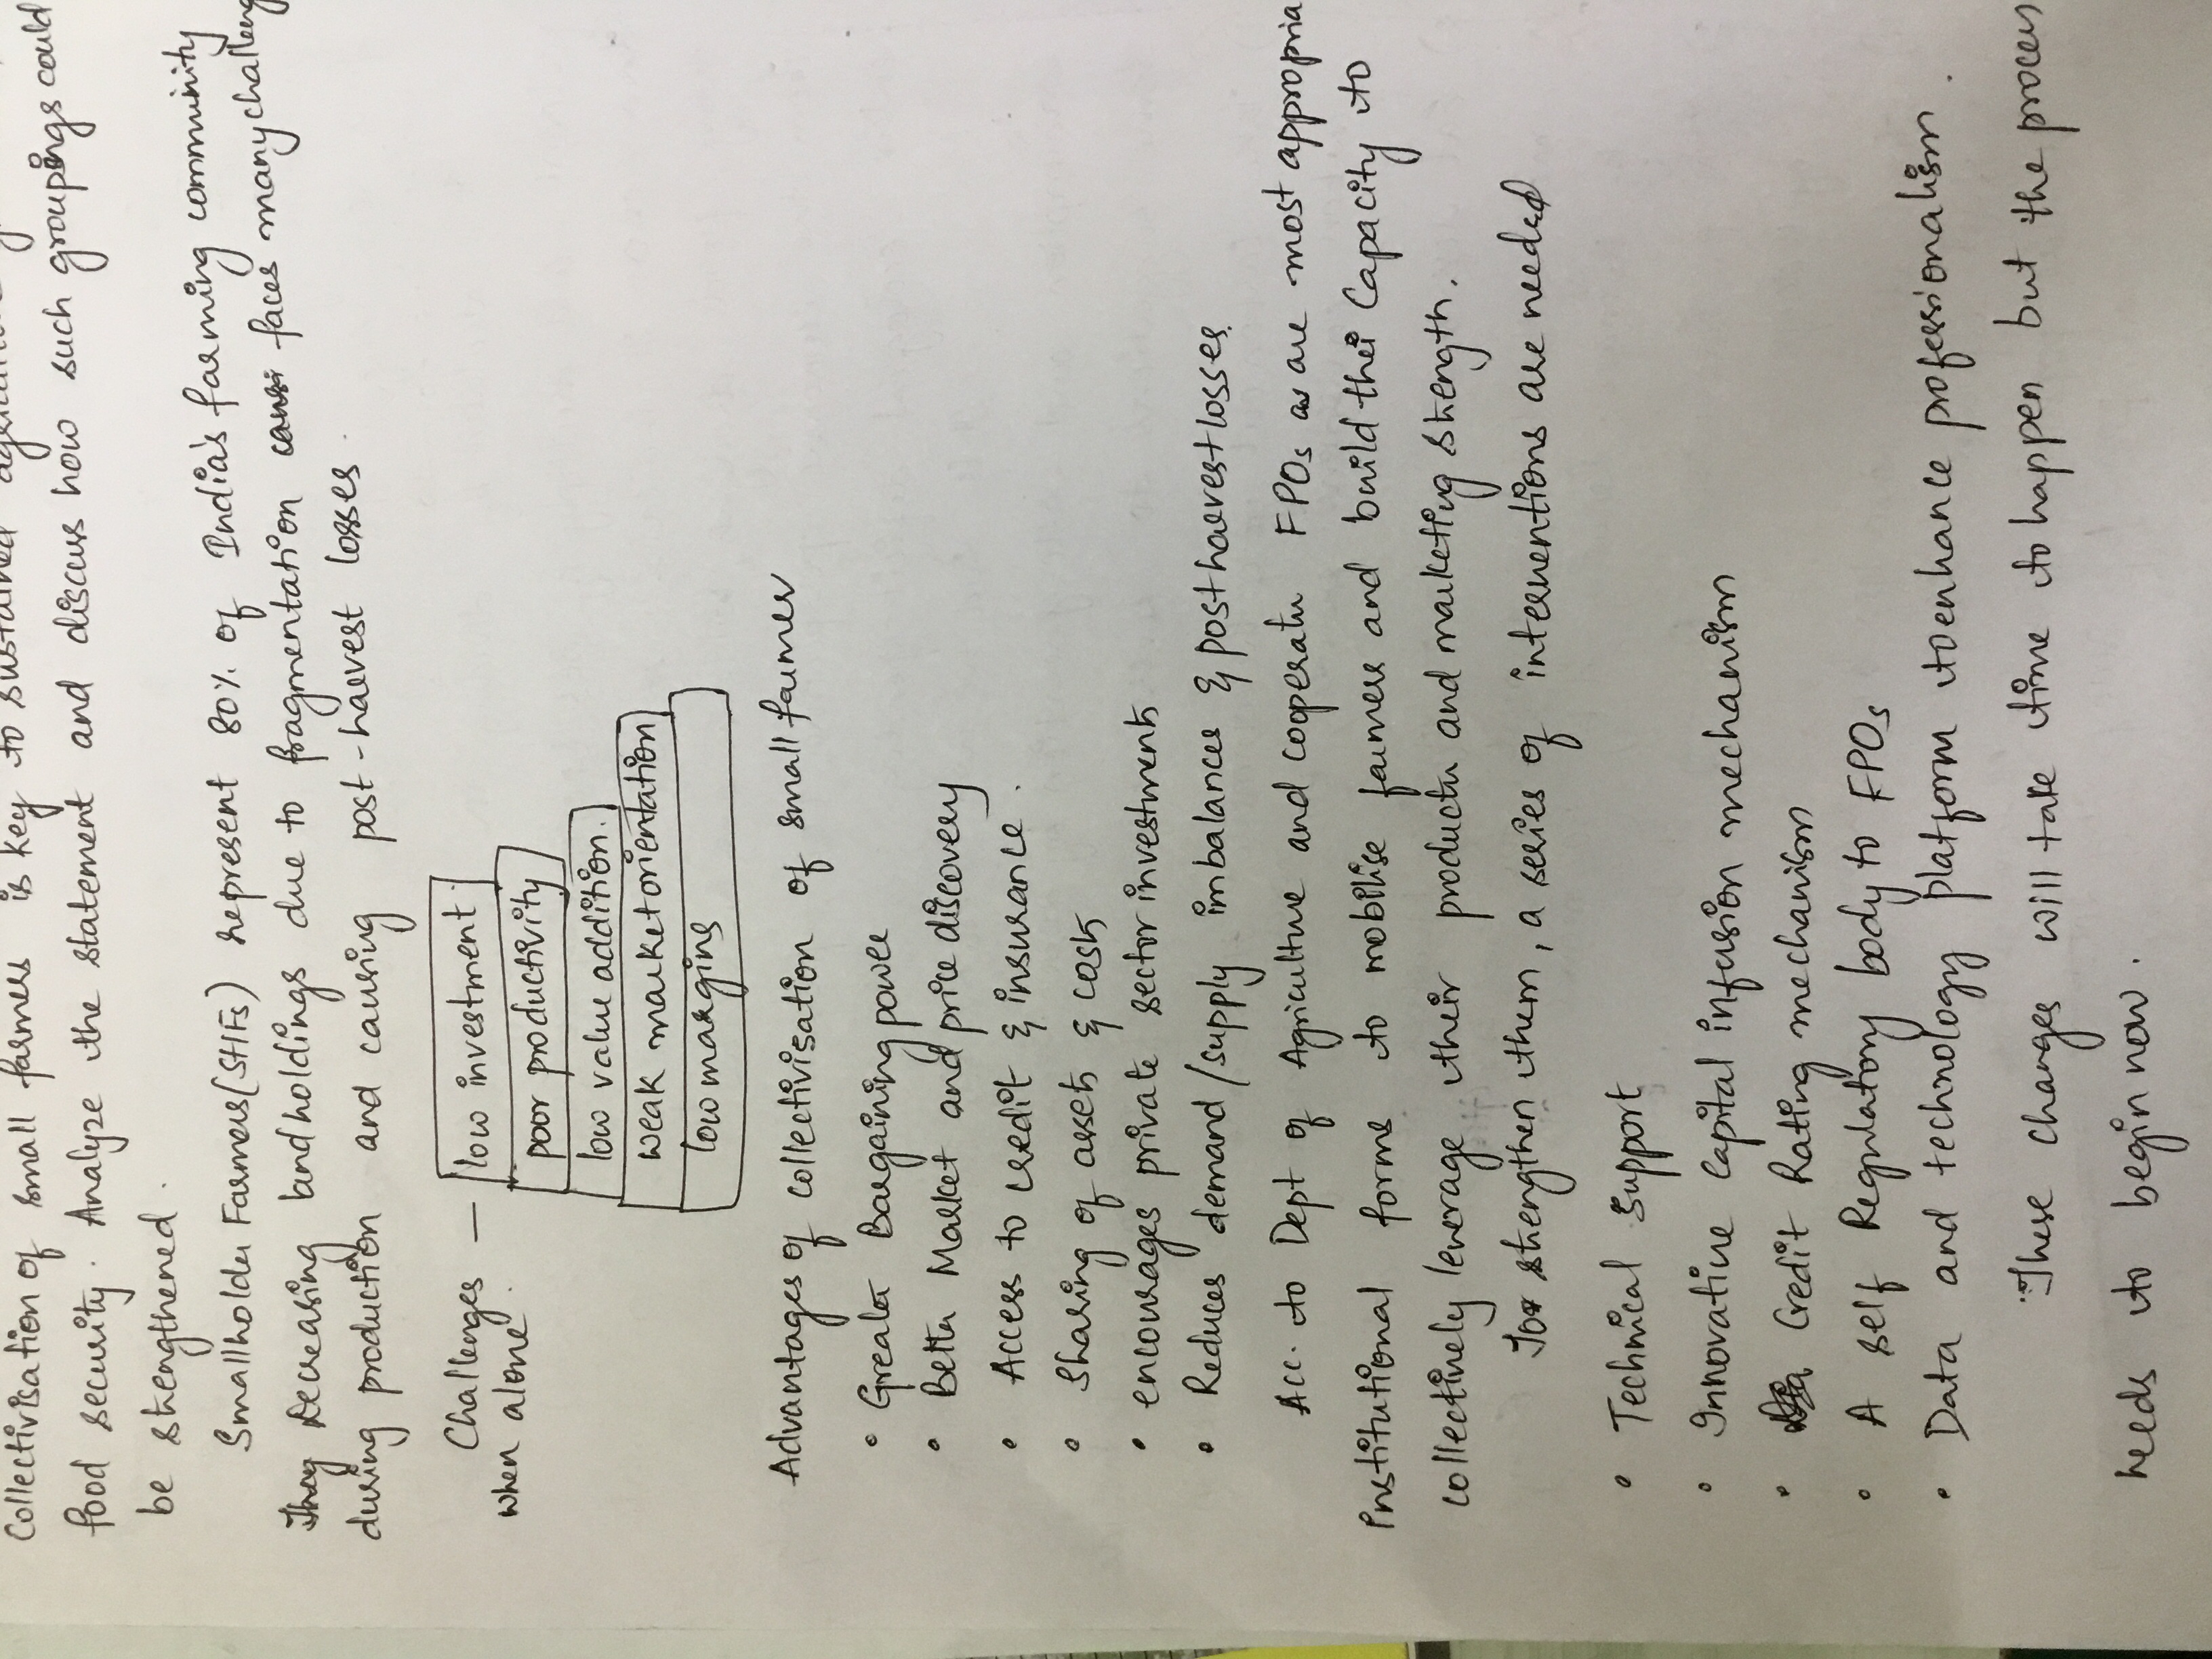 Collectivisation of small farmers is key to sustained
food security. Analyze the statement and discuss how such groupings could
be strengthened.
Smallholder Farmers (SHFs) represent 80% of India's farming community
They Decreasing landholdings due to fragmentation faces many challeng
during production and causing post-harvest losses.
Challenges —
when alone
low investment.
poor productivity
low value addition.
weak market orientation
low margins
Advantages of collectivisation of small farmer
• Greater Bargaining power
• Better Market and price discovery
• Access to credit & insurance.
• Sharing of assets & costs
• encourages private sector investments
• Reduces demand/supply imbalances & post harvest losses.
Acc. to Dept of Agriculture and cooperatn FPOs as are most appropria
Institutional forms to mobilise farmers and build their Capacity to
collectively leverage their productn and marketing strength.
To strengthen them, a series of interventions are needed
• Technical Support
• Innovative Capital infusion mechanism
• Credit Rating mechanism
• A self Regulatory body to FPOs
• Data and technology platform to enhance professionalism.
These changes will take time to happen but the process
needs to begin now.